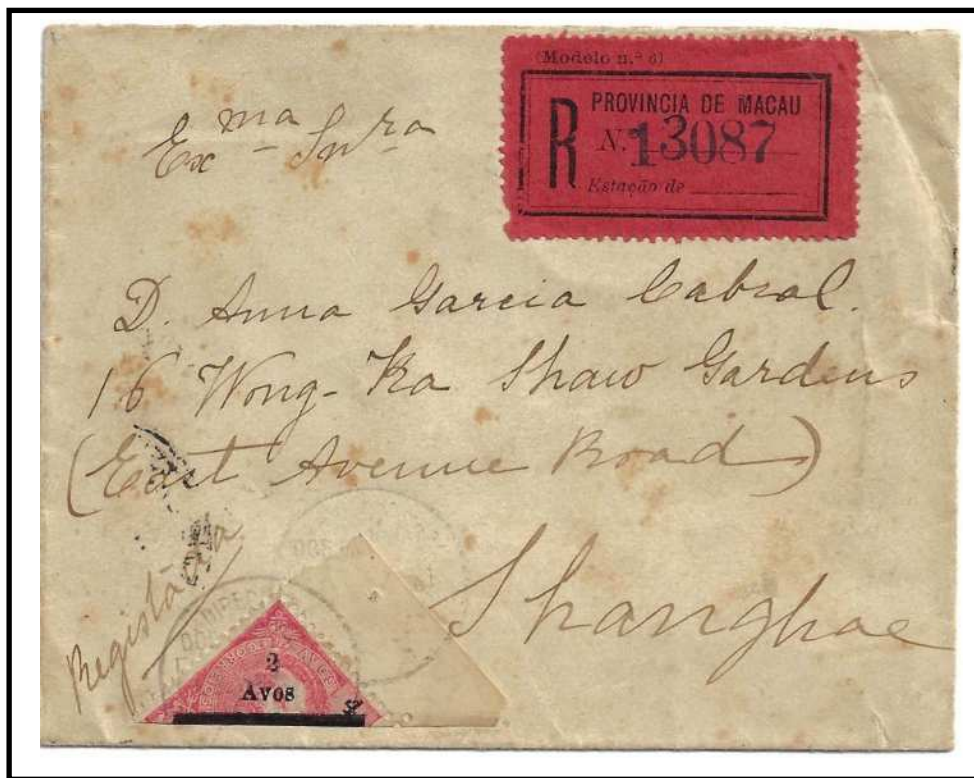 (Modelo n.º 6)
PROVINCIA DE MACAU
R N. 13087
Estação de
Exma Snra
D. Anna Garcia Cabral.
16 Wong-Ka Shaw Gardens
(East Avenue Road)
Shanghae
Registada
2
AVOS